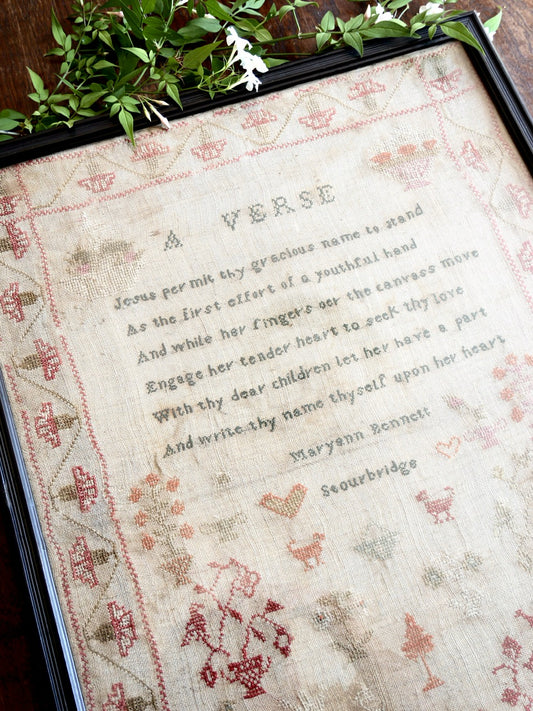 A VERSE
Jesus permit thy gracious name to stand
As the first effort of a youthful hand
And while her fingers oer the canvass move
Engage her tender heart to seek thy love
With thy dear children let her have a part
And write thy name thyself upon her heart
Maryann Bennett
Stourbridge